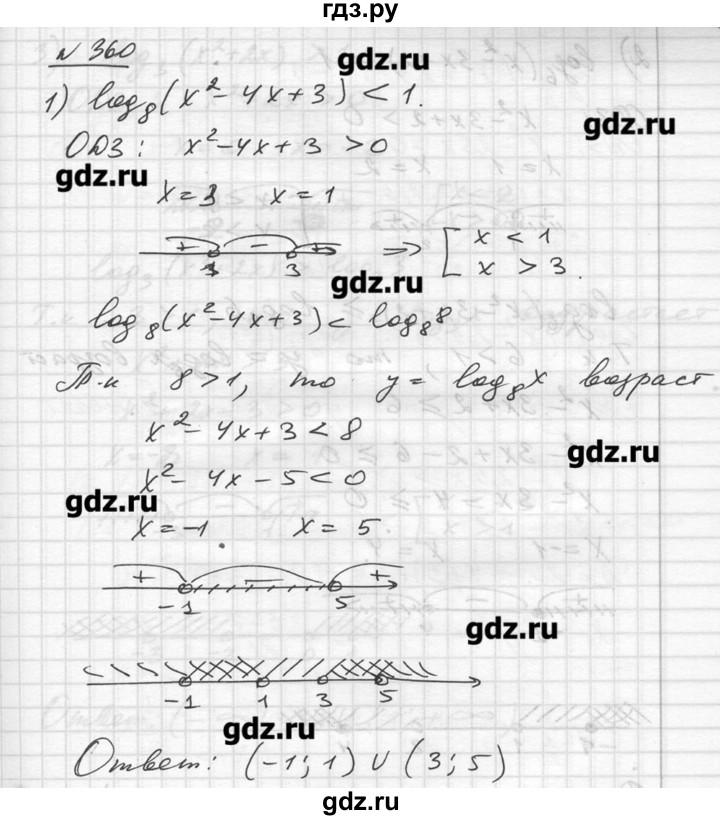 гдз.ру
№ 360
gdz.ru
1) log₈(x² - 4x + 3) < 1.
gdz.ru
ОДЗ: x² - 4x + 3 > 0
gdz.ru
x = 3 x = 1
+ - +
1 3
⇒ [ x < 1
x > 3.
gdz.ru
log₈(x² - 4x + 3) < log₈8
Т.к 8 > 1, то y = log₈x возраст
x² - 4x + 3 < 8
gdz.ru
x² - 4x - 5 < 0
gdz.ru
x = -1 x = 5
+ - +
-1 5
gdz.ru
-1 1 3 5
gdz.ru
Ответ: (-1; 1) ∪ (3; 5)
gdz.ru